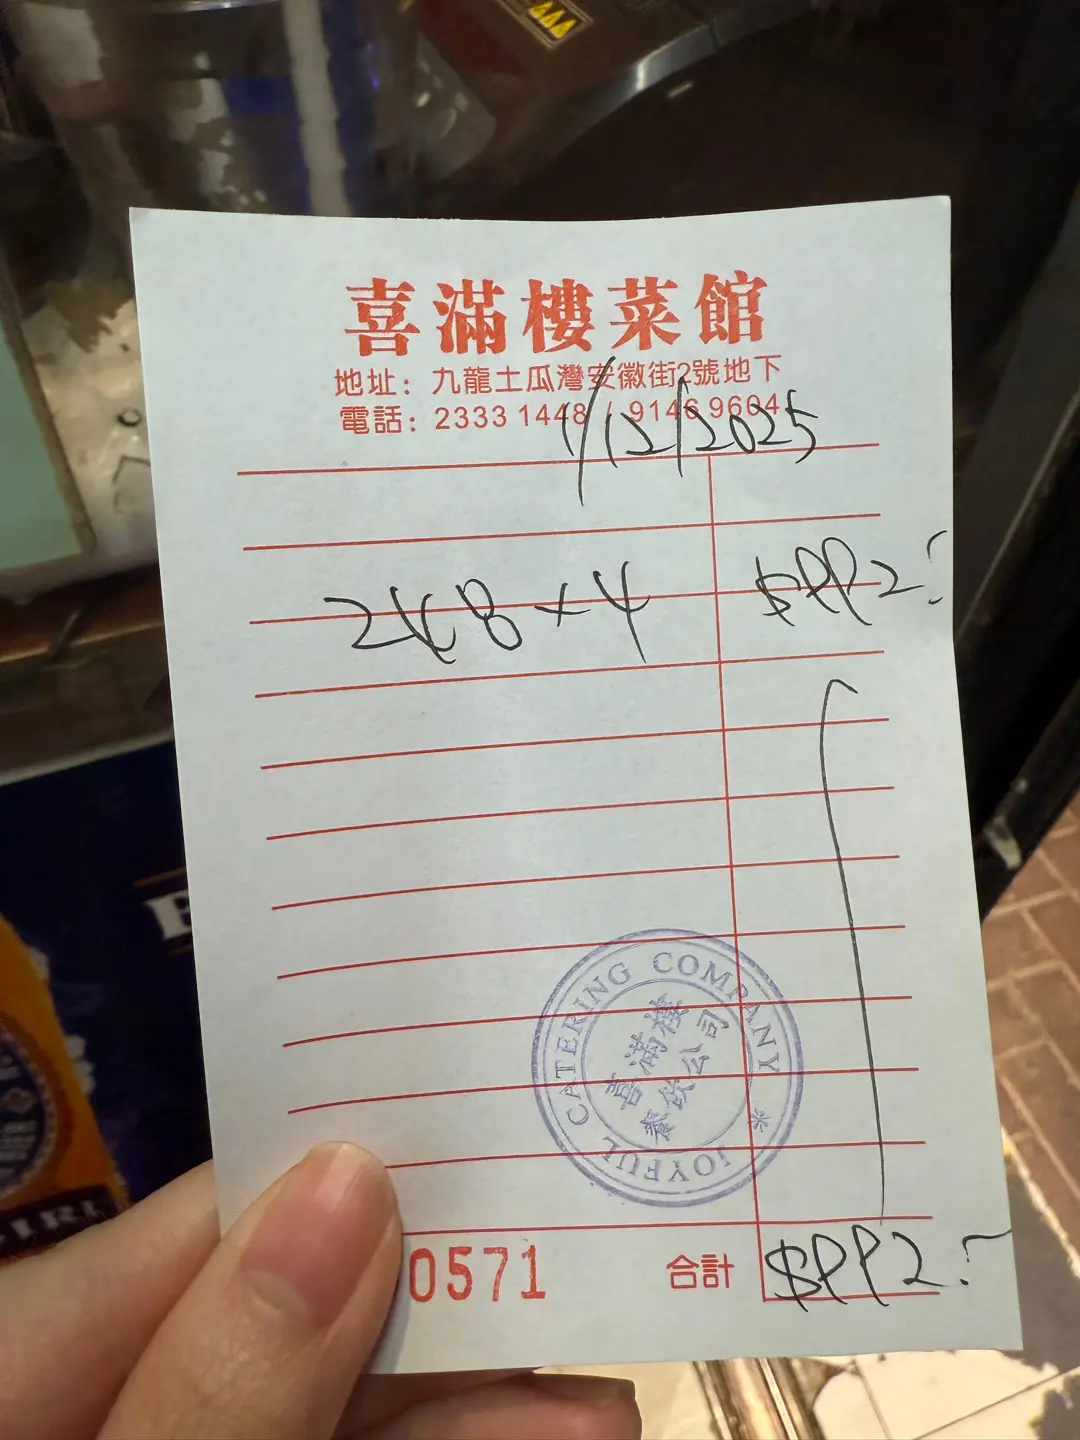 喜滿樓菜館
地址：九龍土瓜灣安徽街2號地下
電話：2333 1448 / 9146 9604
1/12/2025
248 × 4 $992.-
JOYFUL CATERING COMPANY *
喜滿樓
餐飲公司
0571 合計 $992.-